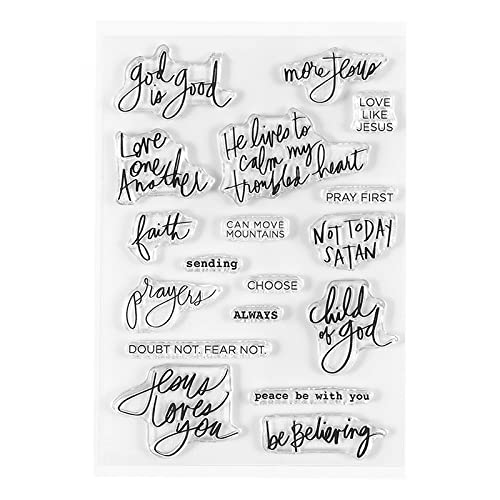 god
is good
more Jesus
LOVE
LIKE
JESUS
Love
one
Another
He lives to
calm my
troubled heart
PRAY FIRST
faith
CAN MOVE
MOUNTAINS
NOT TODAY
SATAN
sending
prayers
CHOOSE
ALWAYS
child
of god
DOUBT NOT. FEAR NOT.
Jesus
loves
you
peace be with you
be Believing